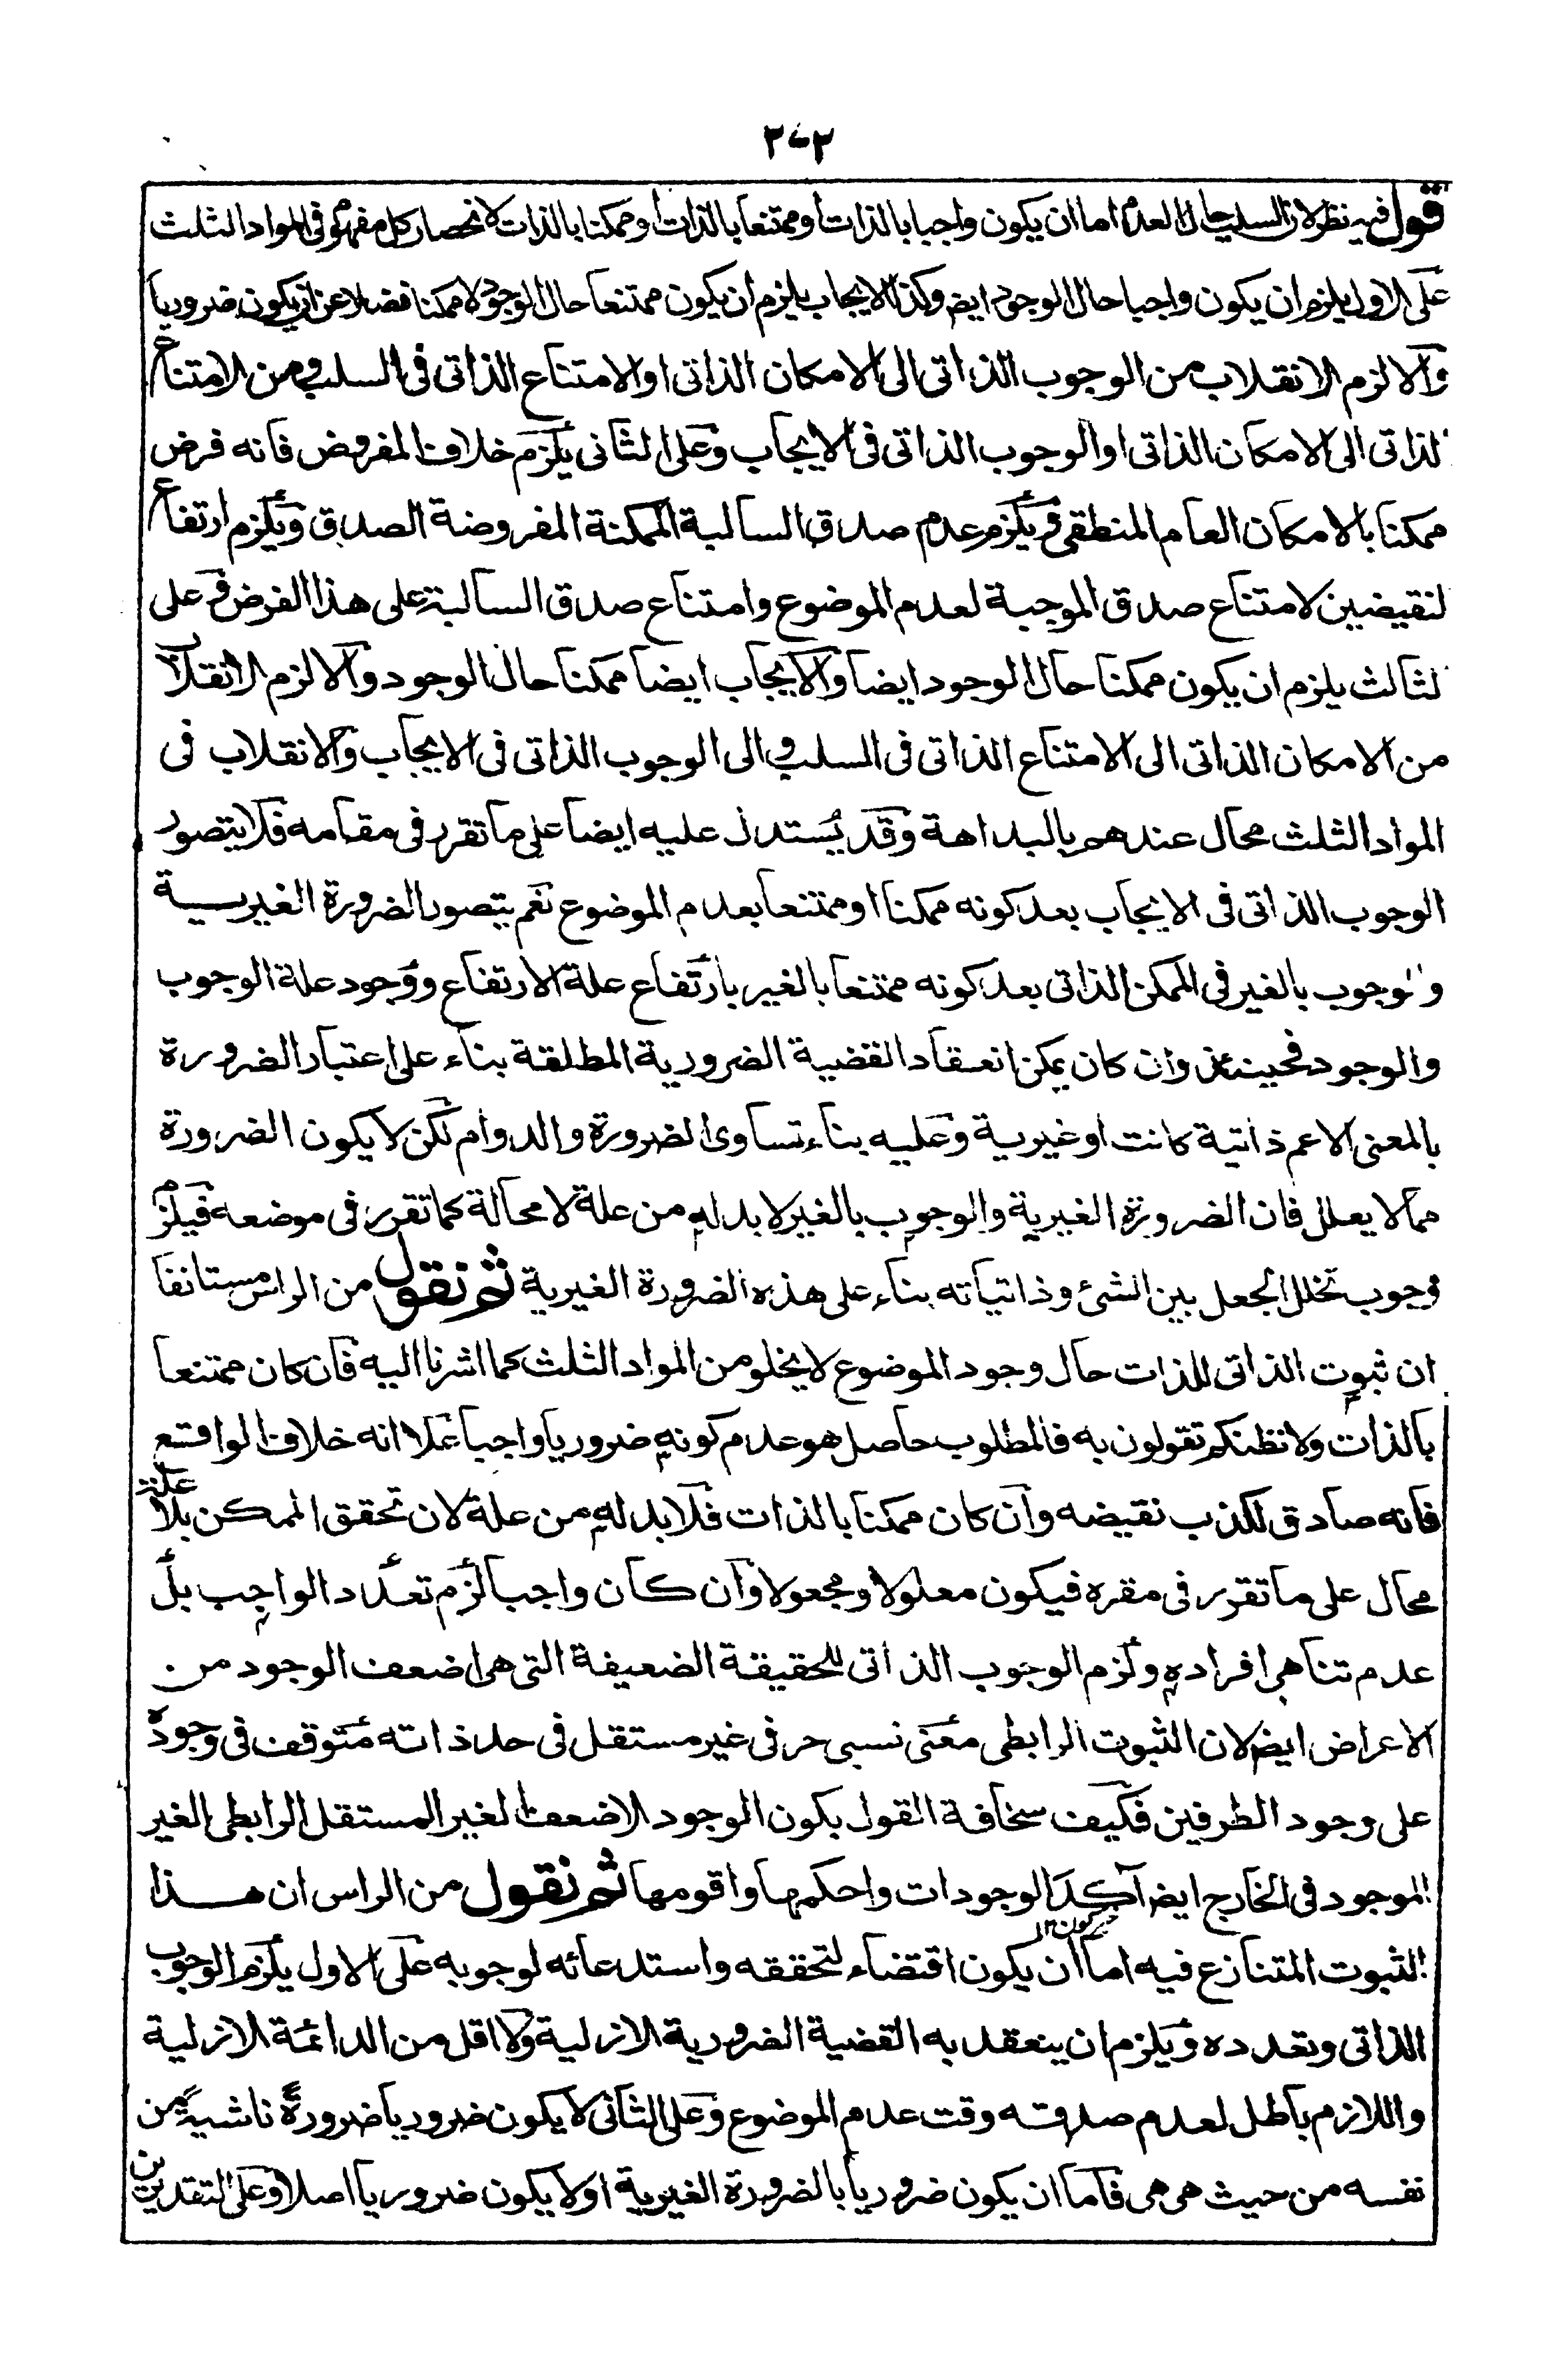 ٣٧٣
قول فيه نظر لان السلب حال العدم اما ان يكون واجبا بالذات او ممتنعا بالذات او ممكنا بالذات لانحصار كل مفهوم فى المواد الثلث
على الاول يلزم ان يكون واجبا حال الوجود ايض وكذا الايجاب يلزم ان يكون ممتنعا حال الوجود لا ممكنا فضلا عن ان يكون ضروريا
والا لزم الانقلاب من الوجوب الذاتى الى الامكان الذاتى او الامتناع الذاتى فى السلب ومن الامتناع
لذاتى الى الامكان الذاتى او الوجوب الذاتى فى الايجاب وعلى الثانى يلزم خلاف المفروض فانه فرض
ممكنا بالامكان العام المنطقى فيلزم عدم صدق السالبة الممكنة المفروضة الصدق ويلزم ارتفاع
لنقيضين لامتناع صدق الموجبة لعدم الموضوع وامتناع صدق السالبة على هذا الفرض وعلى
لثالث يلزم ان يكون ممكنا حال الوجود ايضا والايجاب ايضا ممكنا حال الوجود والا لزم الانقلاب
من الامكان الذاتى الى الامتناع الذاتى فى السلب والى الوجوب الذاتى فى الايجاب والانقلاب فى
المواد الثلث محال عندهم بالبداهة وقد يستدل عليه ايضا على ما تقرر فى مقامه فلا يتصور
الوجوب الذاتى فى الايجاب بعد كونه ممكنا او ممتنعا بعدم الموضوع نعم يتصور الضرورة الغيرية
والوجوب بالغير فى الممكن الذاتى بعد كونه ممتنعا بالغير بارتفاع علة الارتفاع ووجود علة الوجوب
والوجود فحينئذ وان كان يمكن انعقاد القضية الضرورية المطلقة بناء على اعتبار الضرورة
بالمعنى الاعم ذاتية كانت او غيرية وعليه بناء تساوى الضرورة والدوام لكن لا يكون الضرورة
مما لا يعلل فان الضرورة الغيرية والوجوب بالغير لا بد له من علة لا محالة كما تقرر فى موضعه فيلزم
وجوب تخلل الجعل بين الشئ وذاتياته بناء على هذه الضرورة الغيرية ثم نقول من الراس مستانفا
ان ثبوت الذاتى للذات حال وجود الموضوع لا يخلو من المواد الثلث كما اشرنا اليه فان كان ممتنعا
بالذات ولا نظنكم تقولون به فالمطلوب حاصل هو عدم كونه ضروريا واجبا عملا انه خلاف الواقع
فانه صادق لكذب نقيضه وان كان ممكنا بالذات فلا بد له من علة لان تحقق الممكن بلا علة
محال على ما تقرر فى مقره فيكون معلولا ومجعولا وان كان واجبا لزم تعدد الواجب بل
عدم تناهى افراده ولزم الوجوب الذاتى للحقيقة الضعيفة التى هى اضعف الوجود من
الاعراض ايض لان الثبوت الرابطى معنى نسبى حرفى غير مستقل فى حد ذاته متوقف فى وجوده
على وجود الطرفين فكيف سخافة القول بكون الوجود الاضعف الغير المستقل الرابطى الغير
الموجود فى الخارج ايض آكد الوجودات واحكمها واقومها ثم نقول من الراس ان هذا
الثبوت المتنازع فيه اما ان يكون اقتضاء لتحققه واستدعائه لوجوبه على الاول يلزم الوجوب
الذاتى وتعدده ويلزم ان ينعقد به القضية الضرورية الازلية ولا اقل من الدائمة الازلية
واللازم باطل لعدم صدقه وقت عدم الموضوع وعلى الثانى لا يكون ضروريا ضرورة ناشية من
نفسه من حيث هى هى فاما ان يكون ضروريا بالضرورة الغيرية او لا يكون ضروريا اصلا وعلى التقديرين